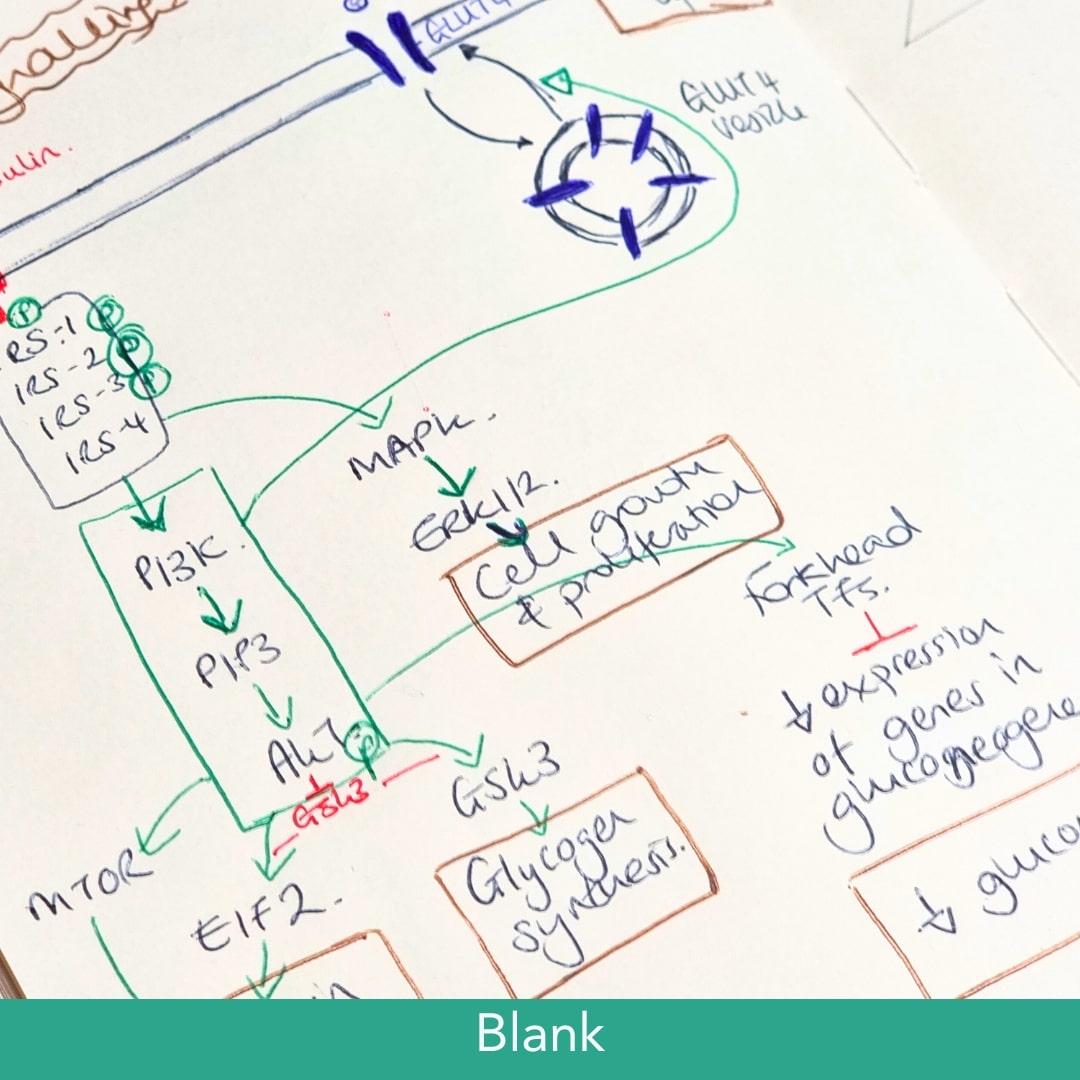 GLUT4
GLUT4
vesicle
IRS-2
IRS-3
IRS-4
MAPK.
ERK1/2.
Cell growth
& proliferation
PI3K.
PIP3
Akt
P
Forkhead
Tfs.
↓ expression
of genes in
GSK3
GSK3
Glycogen
synthesis.
MTOR
EIF2.
Blank